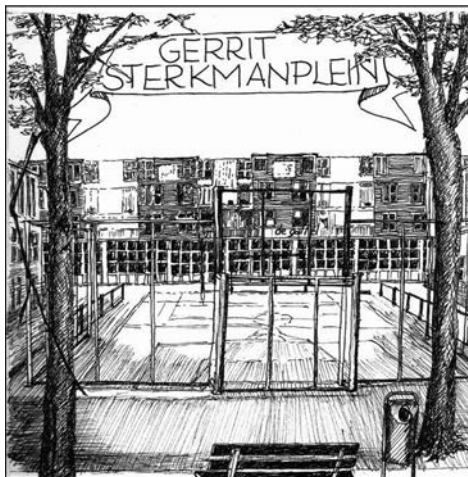 GERRIT
STERKMANPLEIN